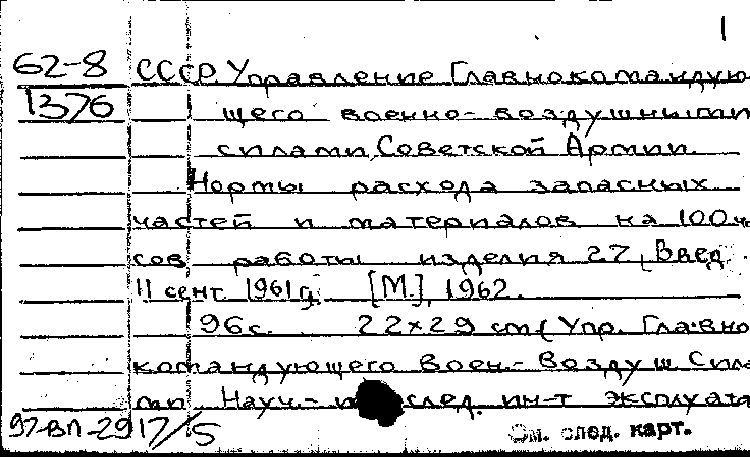 1
62-8 СССР. Управление Главнокомандую
1376 щего военно-воздушными
силами Советской Армии.
Нормы расхода запасных
частей и материалов на 100 ча
сов работы изделия 27. Введ.
11 сент. 1961 г. [М.], 1962.
96 с. 22×29 см (Упр. Главно
командующего Воен.-Воздуш Сила
ми Науч.- след. ин-т эксплуата
97-ВП-2917/5 См. след. карт.